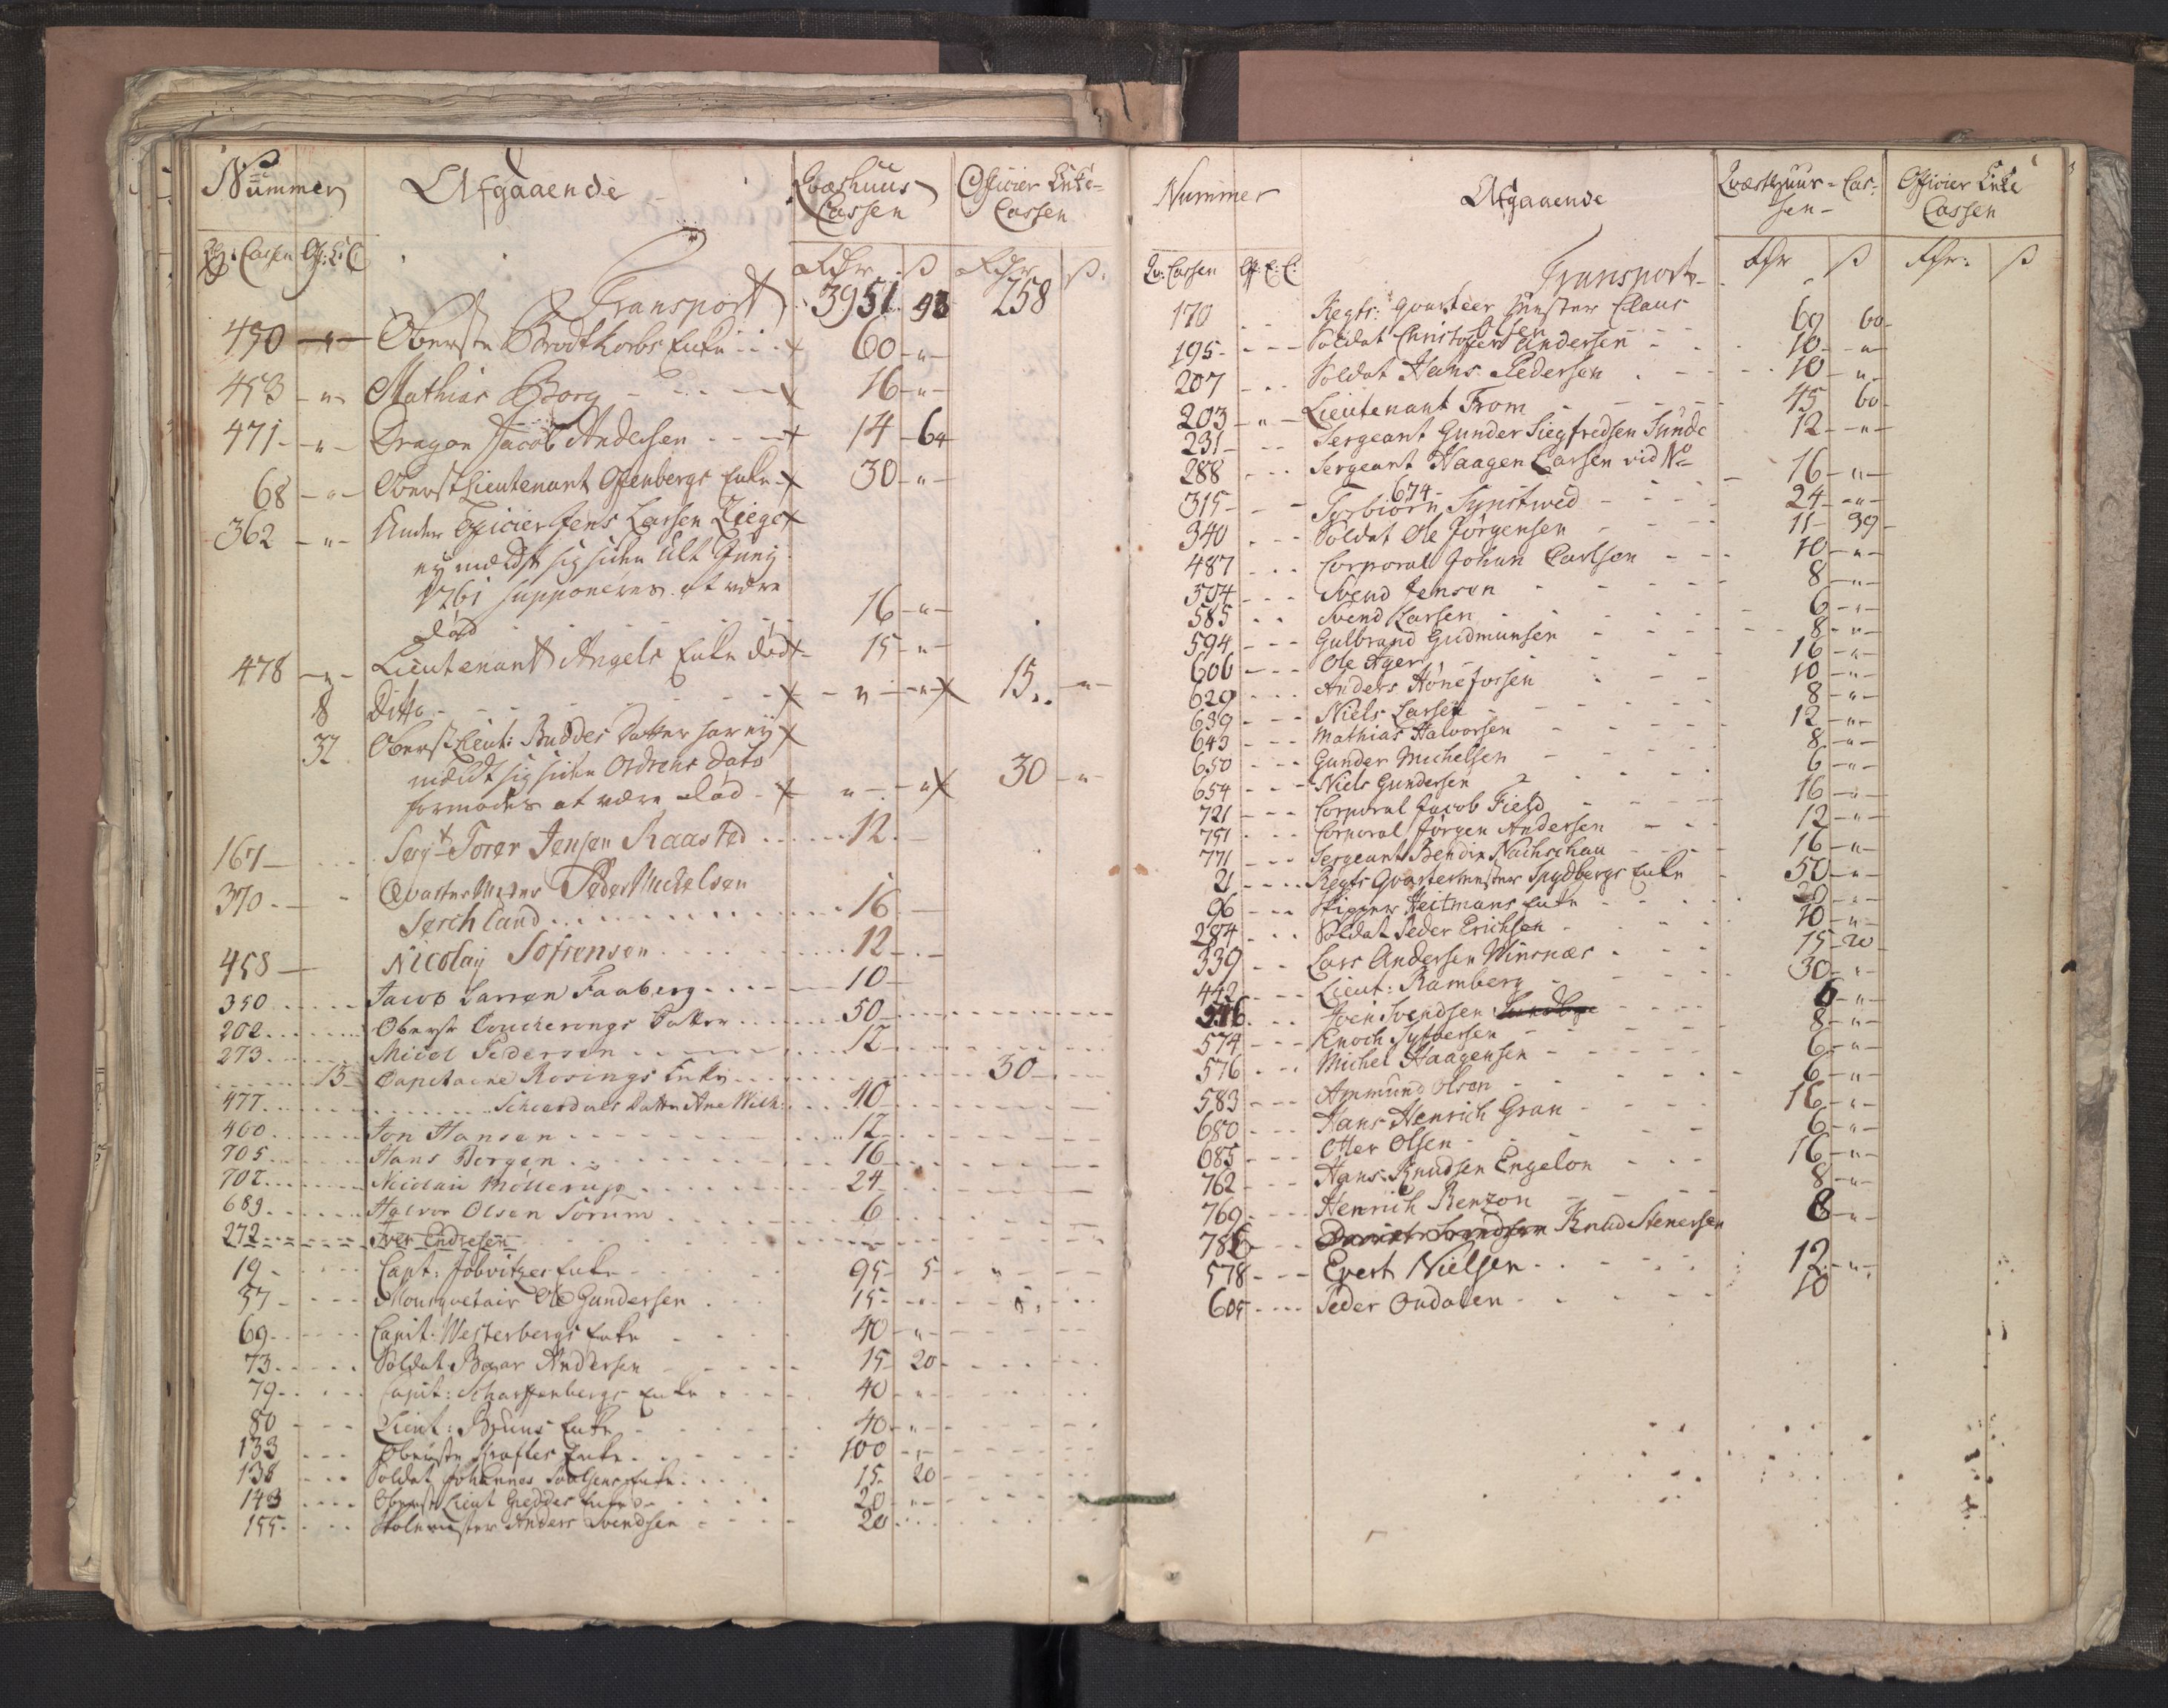 Nummer Afgaaende Qvæsthuus Cassen Officier Enke-Cassen
Qv: Cassen Of: E: C: Rdr ß Rdr ß
Transport 3951 93 258
450 - " - Oberste Brodtkorbs Enke 60 - " -
453 - " - Mathias Borg 16 - " -
471 - " - Dragon Jacob Andersen 14 - 64
68 - " - Oberst Lieutenant Offenbergs Enke 30 - " -
362 - " - Under Officier Jens Larsen Ziege
ey meldt sig siden Ult Junij
1761 supponeres at være
død 16 - " -
478 - " - Lieutenant Angels Enke død 15 - " -
8 Ditto - " - " 15 - " -
32 Oberst Lieut: Buddes Datter har ey
meldt sig siden Ordrens Dato
formodes at være død - " - " 30 - " -
167 Serg.t Torer Jensen Raasted 12
370 Qvarteer Mester Peder Michelsen
Serchland 16
458 Nicolay Sofrensen 12
350 Jacob Larsen Faaberg 10
202 Oberst Coucherongs Datter 50
273 Micel Pedersen 12
13 Capitaine Rosings Enke 30
477 Datter Ane 40
460 Jon Hansen 12
705 Hans Bergen 16
702 Nicolai Møllerup 24
689 Halvor Olsen Sørum 6
272 Iver Endresen
19 Capt: Jobvitzes Enke 95 - 5
57 Mousquetair Ole Gundersen 15
69 Capit: Westerbergs Enke 40 - " -
73 Soldat Baar Andersen 15 20
79 Capit: Scharffenbergs Enke 40 - " -
80 Lieut: Bruuns Enke 40 - " -
133 Oberste Krafftes Enke 100 - " -
138 Soldat Johannes Enke 15 20
143 Oberst Lieut Gieddes Enke 20 - " -
155 Skolemester Anders Svendsen 20
Nummer Afgaaende Qvæsthuus-Cas-
sen Officier Enke Cassen
Qv: Cassen Of: E: C: Rdr ß Rdr: ß
Transport
170 Regts: Qvarteer Mester Claus
Olsen 69 60
195 Soldat Christoffer Andersen 10 - " -
207 Soldat Hans Pedersen 10 - " -
203 - " - Lieutenant From 45 60
231 Sergeant Gunder Siegfredsen Sunde 12 - " -
288 Sergeant Haagen Larsen vid No
674 16 - " -
315 Torbiørn Synstwed 24 - " -
340 Soldat Ole Jørgensen 11 39
487 Corporal Johan Carlsen 10 - " -
504 Svend Jensen 8 - " -
585 Svend Larsen 6 - " -
594 Gulbrand Gudmunsen 8 - " -
606 Ole Ager 16 - " -
629 Anders Hønefossen 10 - " -
639 Niels Larsen 8 - " -
643 Mathias Halvorsen 12 - " -
650 Gunder Michelsen 8 - " -
654 Niels Gundersen 6 - " -
721 Corporal Jacob Field 16 - " -
751 Corporal Jørgen Andersen 12 - " -
771 Sergeant Bendix Nachschau 16 - " -
21 Regts Qvartermester Spydbergs Enke 50 - " -
96 Skipper Heitmans Enke 20 - " -
284 Soldat Peder Erichsen 10 - " -
339 Lars Andersen Winsnæs 15 20
442 Lieut: Ramberg 30 - " -
546 Iven Svendsen 6 - " -
574 Enoch Syversen 8 - " -
576 Michel Haagensen 6 - " -
583 Ammund Olsen 6 - " -
680 Hans Henrich Gran 16 - " -
685 Otter Olsen 6 - " -
762 Hans Knudsen Engelon 16 - " -
769 Henrich Renzon 8 - " -
786 Knud Stenersen 8 - " -
578 Evert Nielsen 12 - " -
605 Peder Ondalen 10